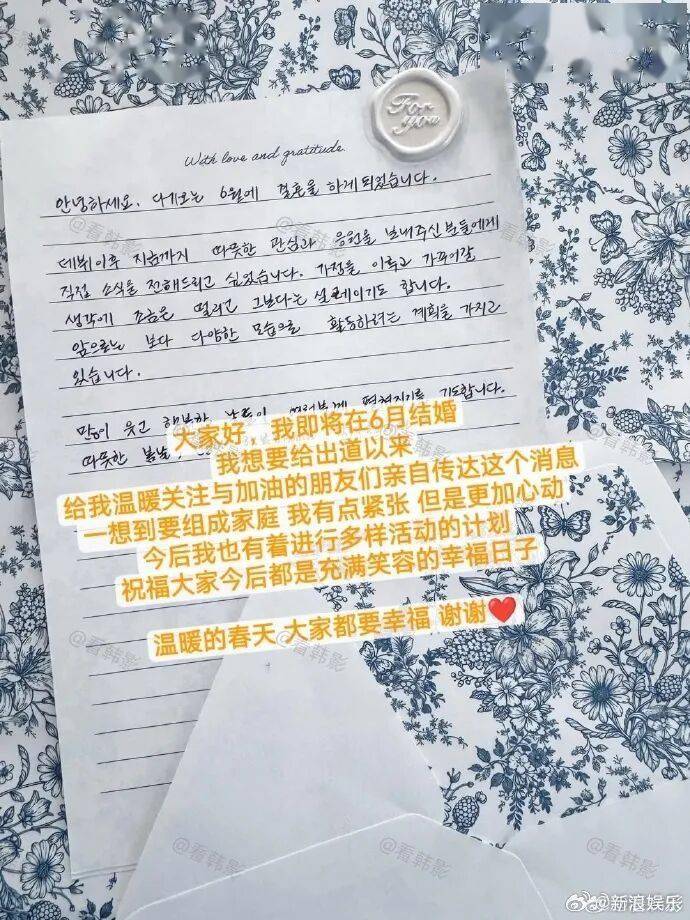 For
you
With love and gratitude
안녕하세요. 다가오는 6월에 결혼을 하게 되었습니다.
데뷔이후 지금까지 따뜻한 관심과 응원을 보내주신 분들에게
직접 소식을 전해드리고 싶었습니다. 가정을 이루고 가꾸어갈
생각에 조금은 떨리고 그보다는 설레이기도 합니다.
앞으로는 보다 다양한 모습으로 활동하려는 계획을 가지고
있습니다.
많이 웃고 행복한 날들이
따뜻한 봄날
大家好，我即将在6月结婚
我想要给出道以来
给我温暖关注与加油的朋友们亲自传达这个消息
一想到要组成家庭 我有点紧张 但是更加心动
今后我也有着进行多样活动的计划
祝福大家今后都是充满笑容的幸福日子
温暖的春天 大家都要幸福 谢谢❤️
@看韩影
@看韩影
@看韩影
@看韩影
@看韩影
@看韩影
@新浪娱乐